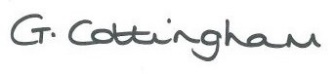 G. Cottingham